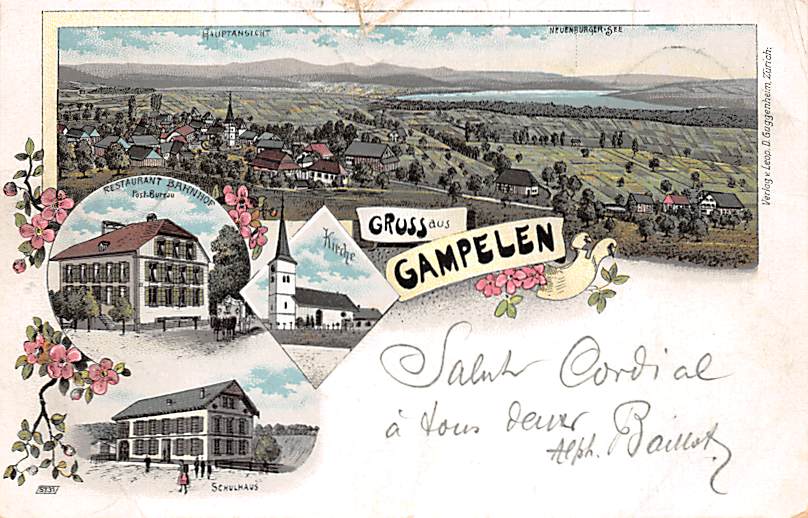 HAUPTANSICHT
NEUENBURGER-SEE
Verlag v. Leop. D. Guggenheim, Zürich.
RESTAURANT BAHNHOF
Post-Bureau
Kirche
GRUSS aus
GAMPELEN
Salut Cordial
à tous deux
Alph. Baillot
SCHULHAUS